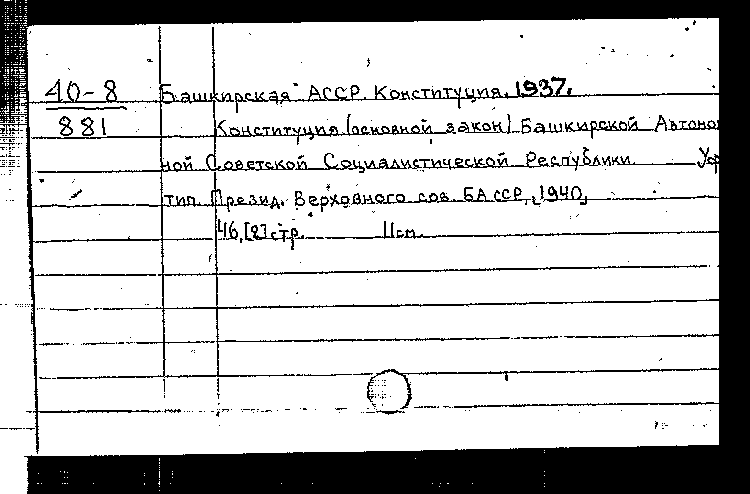 40-8 Башкирская АССР. Конституция. 1937.
881 Конституция (основной закон) Башкирской Автоно
ной Советской Социалистической Республики. Уф
тип. Презид. Верховного сов. БАССР, [1940]
46,[2] стр. 11см.